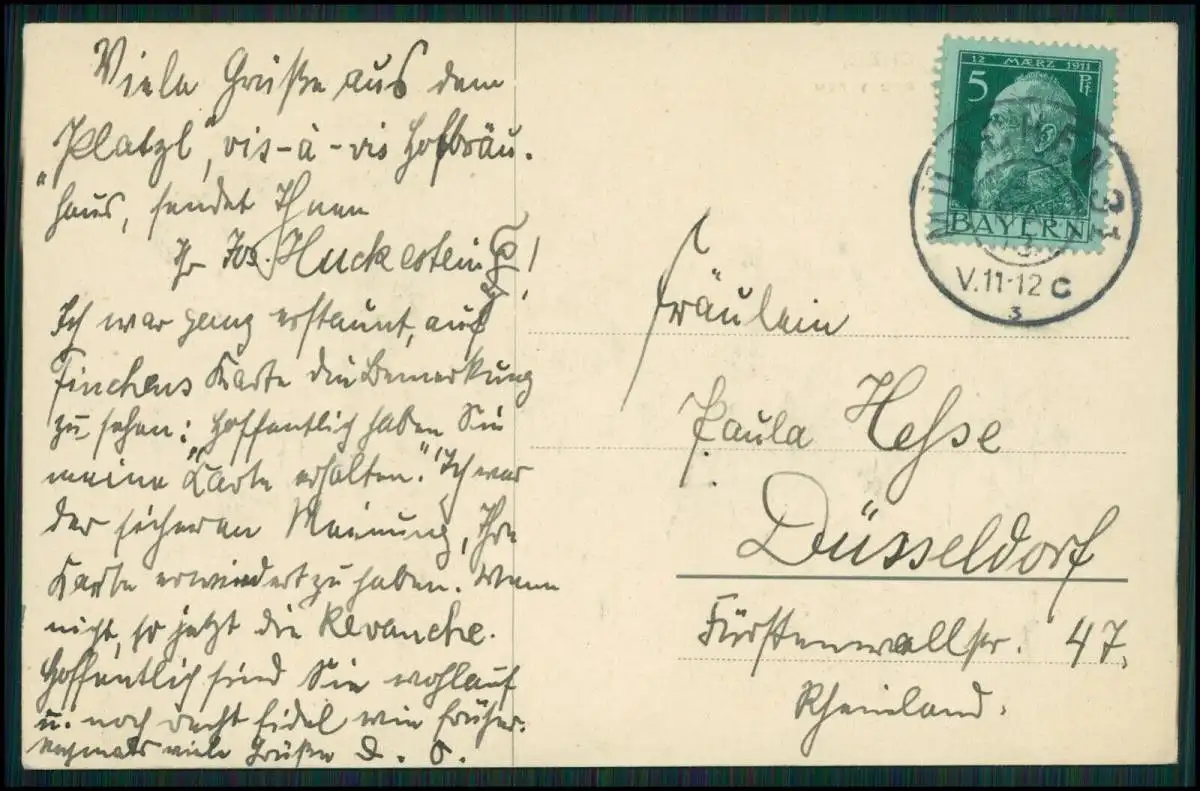 Viele Grüße aus dem
„Platzl“, vis-à-vis Hofbräu-
haus, sendet Ihnen
Ihr Jos. Huckestein!
Ich war ganz erstaunt, auf
Finchens Karte die Bemerkung
zu sehen: Hoffentlich haben Sie
meine Karte erhalten." Ich war
der sicheren Meinung, Ihre
Karte erwidert zu haben. Wenn
nicht, so jetzt die Revanche.
Hoffentlich sind Sie wohlauf
u. noch recht fidel wie früher.
nochmals viele Grüße D. O.
12 MÆRZ 1911
5 Pf.
BAYERN
MÜNCHEN 31
V.11-12 C
3
Fräulein
Paula Hesse
Düsseldorf
Fürstenwallstr. 47.
Rheinland.